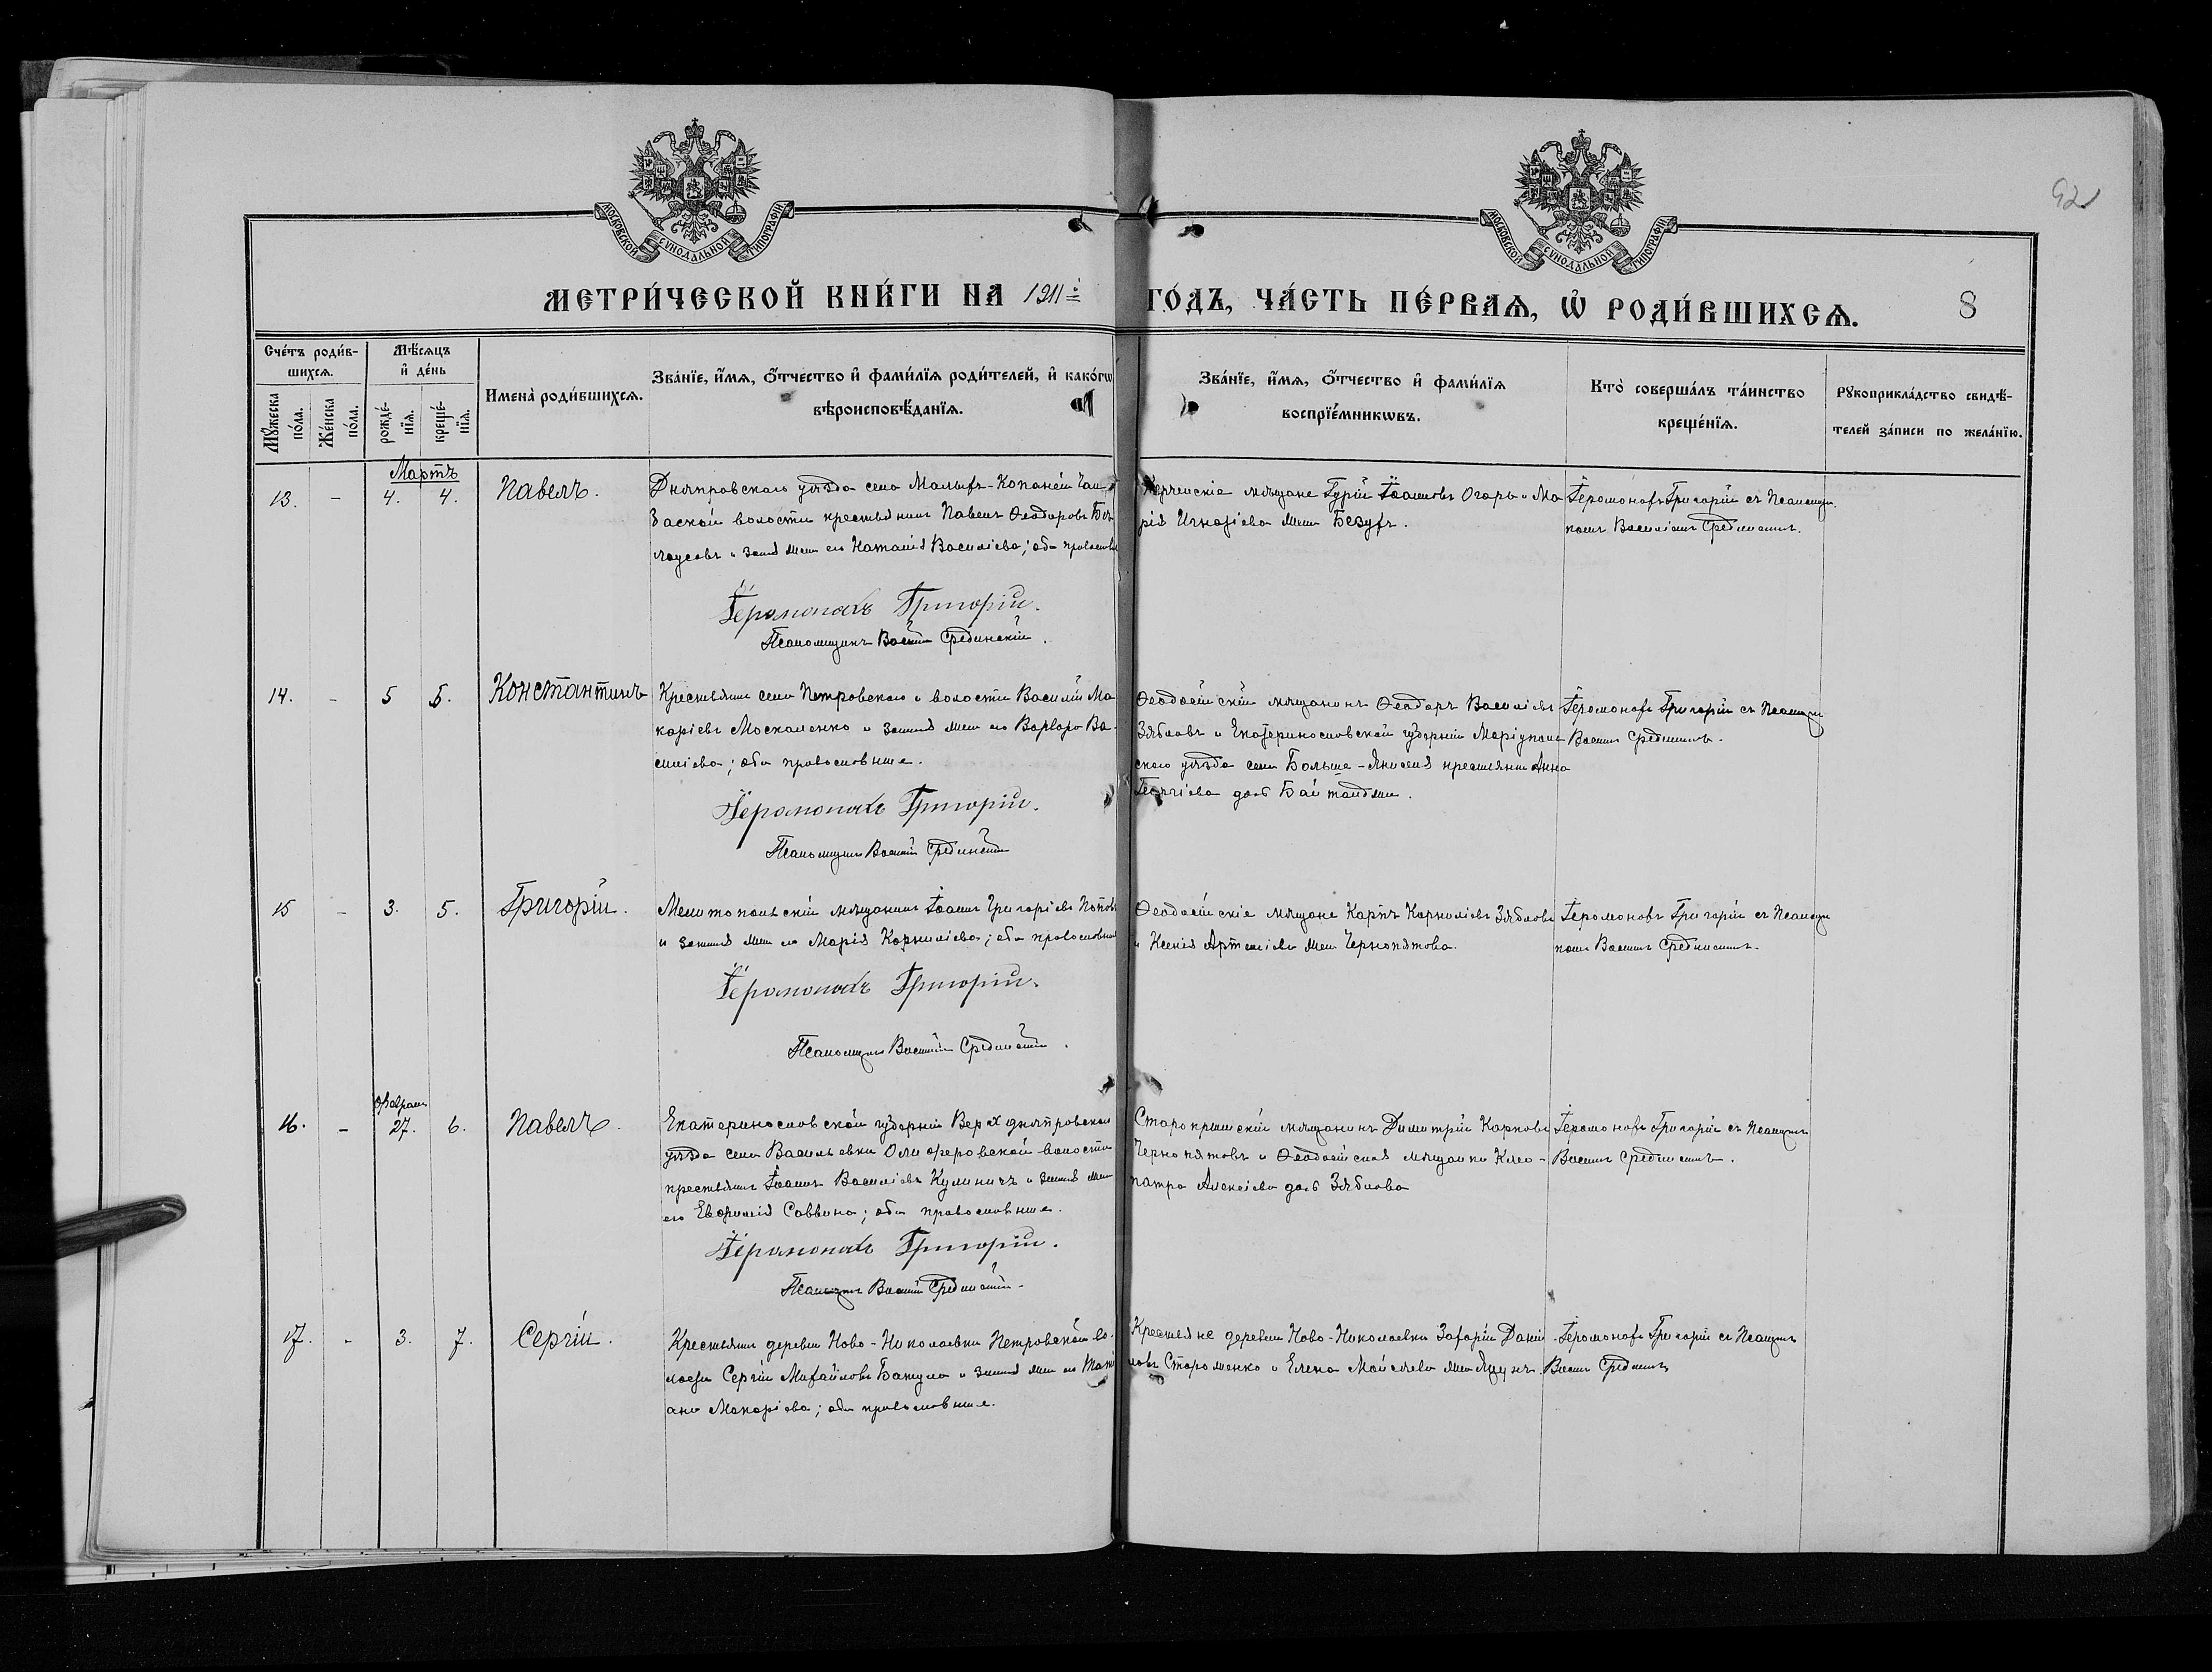 МОСКОВСКОЙ СѴНОДАЛЬНОЙ ТИПОГРАФІИ
МОСКОВСКОЙ СѴНОДАЛЬНОЙ ТИПОГРАФІИ
92
МЕТРИ́ЧЕСКОЙ КНИ́ГИ НА 1911й
ГО́ДЪ, ЧА́СТЬ ПЕ́РВАѦ, Ѿ РОДИ́ВШИХСѦ.
8
Сче́тъ роди́в-
шихсѧ.
Мꙋ́жеска по́ла.
Же́нска по́ла.
Мѣ́сѧцъ
и҆ де́нь
рожде́-
нїѧ.
креще́-
нїѧ.
Имена̀ роди́вшихсѧ.
Зва́нїе, и҆́мѧ, ѻ҆́тчество и҆ фами́лїѧ роди́телей, и҆ како́гѡ
вѣроисповѣ́данїѧ.
Зва́нїе, и҆́мѧ, ѻ҆́тчество и҆ фами́лїѧ
воспрїе́мникѡвъ.
Кто̀ соверша́лъ та́инство
креще́нїѧ.
Рꙋкоприкла́дство свидѣ́-
телей за́писи по жела́нїю.
Мартъ
13. - 4. 4. Павелъ.
Днѣпровскаго уѣзда села Малыхъ-Копаней Чал-
баской волости крестьянинъ Павелъ Ѳеодоровъ Бѣ-
лоусовъ и законная жена его Наталія Василіева; оба православные
Іеромонахъ Григорій.
Псаломщикъ Василій Срединскій.
Керченскіе мѣщане Гурій Іоанновъ Огарь и Ма-
рія Игнатіева жена Безухъ.
Іеромонахъ Григорій съ Псаломщи-
комъ Василіемъ Срединскимъ.
14. - 5 5. Константинъ
Крестьянинъ села Петровскаго и волости Василій Ма-
каріевъ Москаленко и законная жена его Варвара Ва-
силіева; оба православные.
Іеромонахъ Григорій.
Псаломщикъ Василій Срединскій
Ѳеодосійскій мѣщанинъ Ѳеодоръ Василіевъ
Зябловъ и Екатеринославской губерніи Маріуполь-
скаго уѣзда села Больше-Янисоля крестьянка Анна
Георгіева дочь
Іеромонахъ Григорій съ Псаломщи
Василіемъ Срединскимъ.
15 - 3. 5. Григорій.
Мелитопольскій мѣщанинъ Іоаннъ Григоріевъ Поповъ
и законная жена его Марія Корниліева; оба православные
Іеромонахъ Григорій.
Псаломщикъ Василій Срединскій.
Ѳеодосійскіе мѣщане Карпъ Корниліевъ Зябловъ
и Ксенія Артеміева жена Чернопятова.
Іеромонахъ Григорій съ Псаломщи
комъ Василіемъ Срединскимъ.
Февраль
16. - 27. 6. Павелъ.
Екатеринославской губерніи Верхнеднѣпровскаго
уѣзда села Васильевки Олиферовской волости
крестьянинъ Іоаннъ Василіевъ Кулиничъ и законная жена
его Евфимія Саввина; оба православные.
Іеромонахъ Григорій.
Псаломщикъ Василій Срединскій.
Старокрымскій мѣщанинъ Димитрій Карповъ
Чернопятовъ и Ѳеодосійская мѣщанка Клео-
патра Алексіева дочь Зяблова
Іеромонахъ Григорій съ Псаломщикомъ
Василіемъ Срединскимъ.
17. - 3. 7. Сергій.
Крестьянинъ деревни Ново-Николаевки Петровской во-
лости Сергій Михайловъ и законная жена его Тати
ана Макаріева; оба православные.
Крестьяне деревни Ново-Николаевки Захарій Дании-
ловъ Стороженко и Елена Моисеева жена Яцунъ.
Іеромонахъ Григорій съ Псаломщикомъ
Василіемъ Срединскимъ